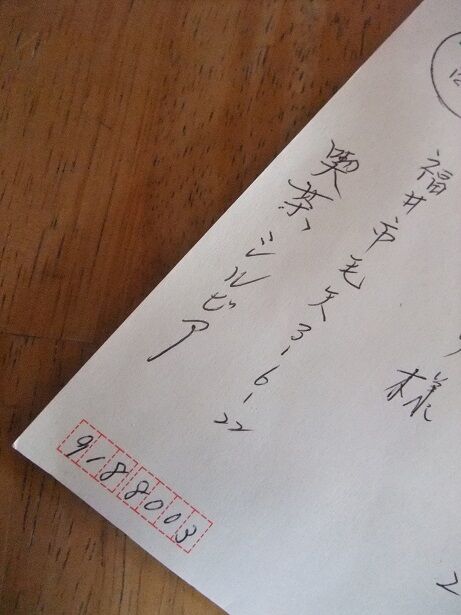 様
福井市毛矢3-6-22
喫茶シルビア
9188003